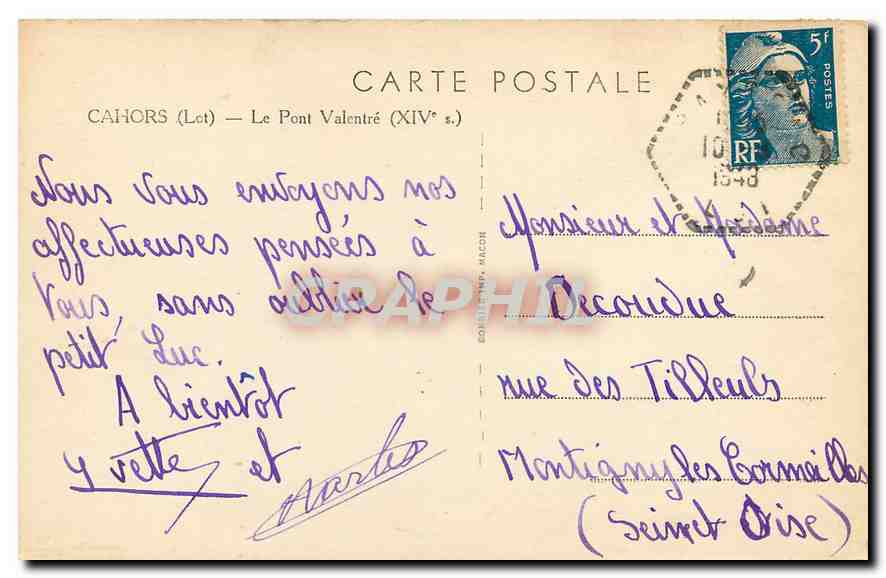 CARTE POSTALE
CAHORS (Lot) — Le Pont Valentré (XIVe s.)
Nous vous envoyons nos
affectueuses pensées à
vous, sans oublier le
petit Luc.
A bientôt
Yvette et
Charles
COMBIER IMP. MACON
5f
POSTES
RF
10
1948
Monsieur et Madame
Decoudue
rue des Tilleuls
Montigny les Cormeilles
(Seine et Oise)
SPAPHIL